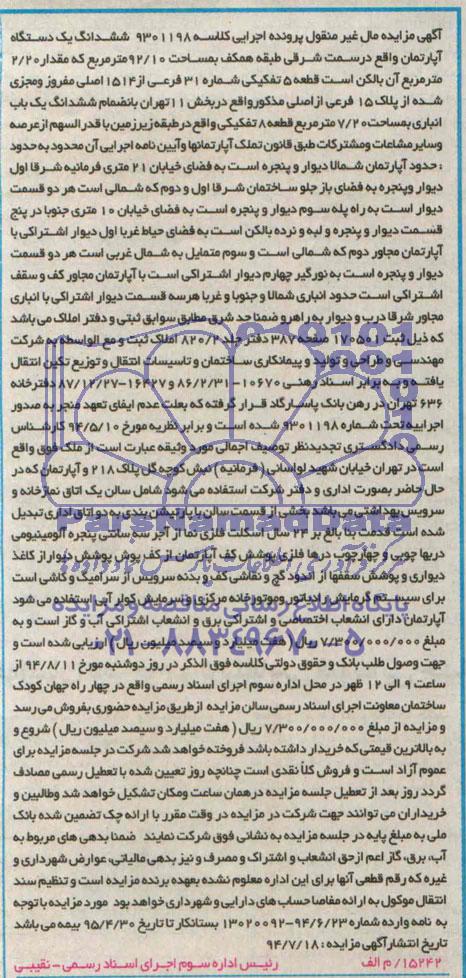 آگهی مزایده مال غیر منقول پرونده اجرایی کلاسه ۹۳۰۱۱۹۸ ششدانگ یک دستگاه
آپارتمان واقع درسمت شرقی طبقه همکف بمساحت ۹۲/۱۰ مترمربع که مقدار ۲/۲۰
مترمربع آن بالکن است قطعه ۵ تفکیکی شماره ۳۱ فرعی از ۱۵۱۴ اصلی مفروز ومجزی
شده از پلاک ۱۵ فرعی از اصلی مذکور واقع در بخش ۱۱ تهران بانضمام ششدانگ یک باب
انباری بمساحت ۷/۲۰ مترمربع قطعه ۸ تفکیکی واقع در طبقه زیرزمین با قدرالسهم از عرصه
وسایر مشاعات ومشترکات طبق قانون تملک آپارتمانها وآیین نامه اجرایی آن محدود به حدود
: حدود آپارتمان شمالا دیوار و پنجره است به فضای خیابان ۲۱ متری فرمانیه شرقا اول
دیوار وپنجره به فضای باز جلو ساختمان شرقا اول و دوم که شمالی است هر دو قسمت
دیوار است به راه پله سوم دیوار و پنجره است به فضای خیابان ۱۰ متری جنوبا در پنج
قسمت دیوار و پنجره و لبه و نرده بالکن است به فضای حیاط غربا اول دیوار اشتراکی با
آپارتمان مجاور دوم که شمالی است و سوم متمایل به شمال غربی است هر دو قسمت
دیوار و پنجره است به نورگیر چهارم دیوار اشتراکی است با آپارتمان مجاور کف و سقف
اشتراکی است حدود انباری شمالا و جنوبا و غربا هرسه قسمت دیوار اشتراکی با انباری
مجاور شرقا درب و دیوار به راهرو ضمنا حد شرق مطابق سوابق ثبتی و دفتر املاک می باشد
که ذیل ثبت ۱۷۰۵۰۱ صفحه ۳۸۷ دفتر جلد ۸۲۰/۲ املاک ثبت و مع الواسطه به شرکت
مهندسی و طراحی و تولید و پیمانکاری ساختمان و تاسیسات انتقال و توزیع تکین انتقال
یافته و به برابر اسناد رهنی ۱۰۶۷۰-۸۶/۲/۳۱ و ۱۶۴۲۷-۸۷/۱۲/۲۷ دفترخانه
۶۳۶ تهران در رهن بانک پاسارگاد قرار گرفته که بعلت عدم ایفای تعهد منجر به صدور
اجراییه تحت شماره ۹۳۰۱۱۹۸ شده است و برابر نظریه مورخ ۹۴/۵/۱۰ کارشناس
رسمی دادگستری تجدیدنظر توصیف اجمالی مورد وثیقه عبارت است از ملک فوق واقع
است در تهران خیابان شهید لواسانی (فرمانیه) نبش کوچه گل پلاک ۲۱۸ و آپارتمان که در
حال حاضر بصورت اداری و دفتر شرکت استفاده می شود شامل سالن یک اتاق نمازخانه و
سرویس بهداشتی می باشد بخشی از قسمت سالن با پارتیشن بندی به دو اتاق اداری تبدیل
شده است قدمت بنا بالغ بر ۲۴ سال اسکلت فلزی نما از آجر سه سانتی پنجره آلومینیومی
دربها چوبی و چهارچوب درها فلزی پوشش کف آپارتمان از کف پوش پوشش دیوار از کاغذ
دیواری و پوشش سقفها از اندود گچ و نقاشی کف و بدنه سرویس از سرامیک و کاشی است
برای سیستم گرمایش رادیاتور وموتورخانه مرکزی و سرمایش کولر آبی استفاده می شود
آپارتمان دارای انشعاب اختصاصی و اشتراکی برق و انشعاب اشتراکی آب و گاز است و به
مبلغ ۷/۳۰۰/۰۰۰/۰۰۰ ریال ( هفت میلیارد و سیصد میلیون ریال ) ارزیابی شده است و
جهت وصول طلب بانک و حقوق دولتی کلاسه فوق الذکر در روز دوشنبه مورخ ۹۴/۸/۱۱ از
ساعت ۹ الی ۱۲ ظهر در محل اداره سوم اجرای اسناد رسمی واقع در چهار راه جهان کودک
ساختمان معاونت اجرای اسناد رسمی سالن مزایده از طریق مزایده حضوری بفروش می رسد
و مزایده از مبلغ ۷/۳۰۰/۰۰۰/۰۰۰ ریال ( هفت میلیارد و سیصد میلیون ریال ) شروع و
به بالاترین قیمتی که خریدار داشته باشد فروخته خواهد شد شرکت در جلسه مزایده برای
عموم آزاد است و فروش کلاً نقدی است چنانچه روز تعیین شده با تعطیل رسمی مصادف
گردد روز بعد از تعطیل جلسه مزایده در همان ساعت ومکان تشکیل خواهد شد وطالبین و
خریداران می توانند جهت شرکت در مزایده در وقت مقرر با ارائه چک تضمین شده بانک
ملی به مبلغ پایه در جلسه مزایده به نشانی فوق شرکت نمایند ضمنا بدهی های مربوط به
آب، برق، گاز اعم از حق انشعاب و اشتراک و مصرف و نیز بدهی مالیاتی، عوارض شهرداری و
غیره که رقم قطعی آنها برای این اداره معلوم نشده بعهده برنده مزایده است و تنظیم سند
انتقال موکول به ارائه مفاصا حساب های دارایی و شهرداری خواهد بود مورد مزایده با توجه
به نامه وارده شماره ۱۳۰۲۰۰۹۲-۹۴/۶/۲۳ بستانکار تا تاریخ ۹۵/۴/۳۰ بیمه می باشد
تاریخ انتشار آگهی مزایده : ۹۴/۷/۱۸
۱۵۲۴۲/ م الف رئیس اداره سوم اجرای اسناد رسمی - نقیبی
ParsNamadData
پایگاه اطلاع رسانی مناقصه و مزایده
۰۲۱-۸۸۳۴۹۶۷۰-۵